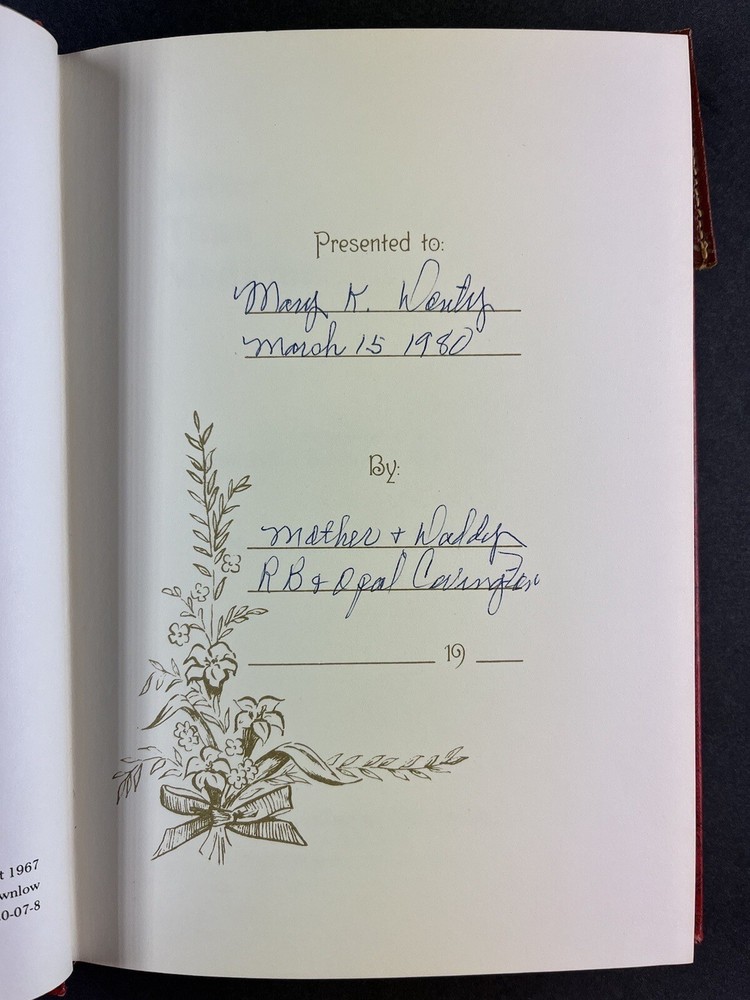 Presented to:
Mary K. Wenty
March 15 1980
By:
Mother & Daddy
RB & Opal Covington
19
t 1967
wnlow
0-07-8